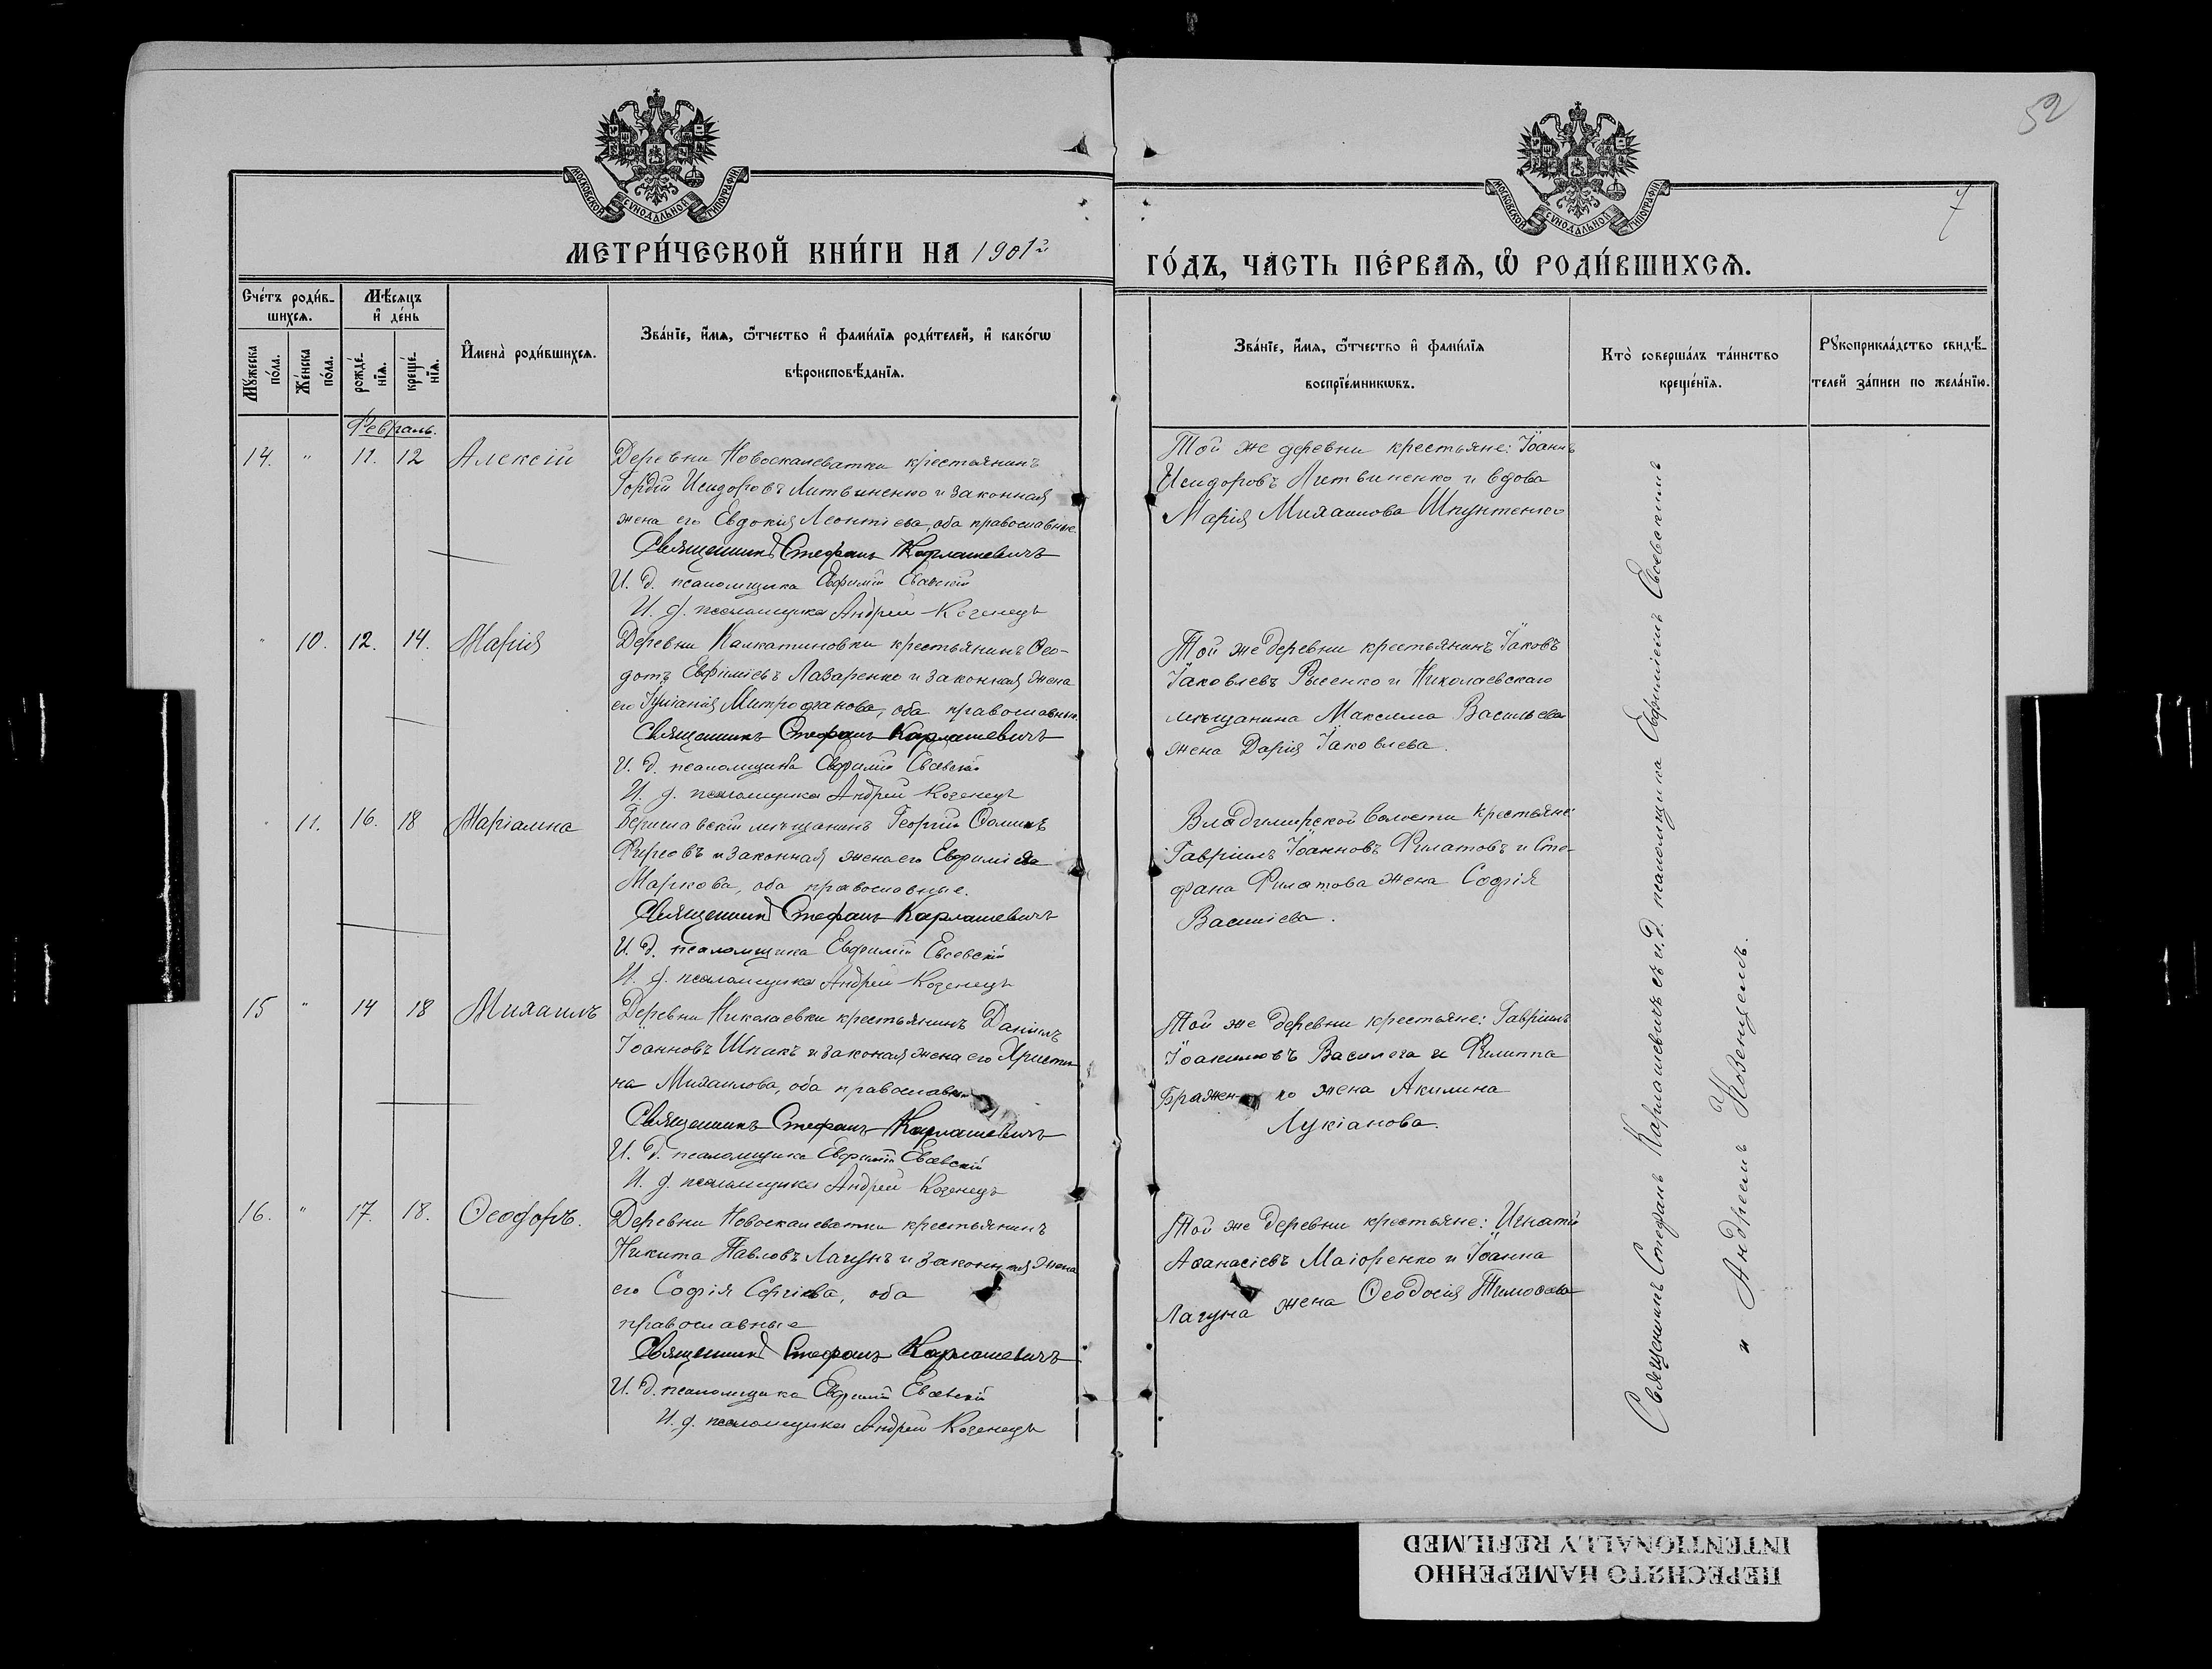 52
7
МОСКОВСКОЙ СѴНОДАЛЬНОЙ ТИПОГРАФІИ
МОСКОВСКОЙ СѴНОДАЛЬНОЙ ТИПОГРАФІИ
МЕТРИ́ЧЕСКОЙ КНИ́ГИ НА 1901й
ГО́ДЪ, ЧА́СТЬ ПЕ́РВАѦ, Ѽ РОДИ́ВШИХСѦ.
Сче́тъ роди́в-
шихсѧ.
Мꙋ́жеска по́ла.
Же́нска по́ла.
Мѣ́сѧцъ
и҆ де́нь
рожде́-нїѧ.
креще́-нїѧ.
И҆мена̀ роди́вшихсѧ.
Зва́нїе, и҆́мѧ, ѻ҆́тчество и҆ фами́лїѧ роди́телей, и҆ како́гѡ
вѣроисповѣ́данїѧ.
Зва́нїе, и҆́мѧ, ѻ҆́тчество и҆ фами́лїѧ
воспрїе́мникѡвъ.
Кто̀ соверша́лъ та́инство
креще́нїѧ.
Рꙋкоприкла́дство свидѣ́-
телей за́писи по жела́нїю.
Февраль.
14. " 11. 12 Алексій
Деревни Новоскалеватки крестьянинъ
Гордій Исидоровъ Литвиненко и законная
жена его Евдокія Леонтіева, оба православные.
Священникъ Стефанъ Карпашевичъ
И. д. псаломщика Евфимій Евсевскій
И. д. псаломщика Андрей Козенецъ
Той же деревни крестьяне: Іоаннъ
Исидоровъ Литвиненко и вдова
Марія Михаилова Шпунтенко
" 10. 12. 14. Марія
Деревни крестьянинъ Ѳео-
дотъ Евфиміевъ Лазаренко и законная жена
его Іуліанія Митрофанова, оба православные.
Священникъ Стефанъ Карпашевичъ
И. д. псаломщика Евфимій Евсевскій
И. д. псаломщика Андрей Козенецъ
Той же деревни крестьянинъ Іаковъ
Іаковлевъ и Николаевскаго
мѣщанина Максима Васильева
жена Дарія Іаковлева.
" 11. 16. 18 Маріамна
Бериславскій мѣщанинъ Георгій Ѳоминъ
и законная жена его Евфимія
Маркова, оба православные.
Священникъ Стефанъ Карпашевичъ
И. д. псаломщика Евфимій Евсевскій
И. д. псаломщика Андрей Козенецъ
Владимирской волости крестьяне
Гавріилъ Іоанновъ Филатовъ и Сте-
фана Филатова жена Софія
Василіева.
15 " 14 18 Михаилъ
Деревни Николаевки крестьянинъ Даніилъ
Іоанновъ Шпакъ и законая жена его Христи-
на Михаилова, оба православные
Священникъ Стефанъ Карпашевичъ
И. д. псаломщика Евфимій Евсевскій
И. д. псаломщика Андрей Козенецъ
Той же деревни крестьяне: Гавріилъ
Іоакимовъ Василега и Филиппа
жена Акилина
Лукіанова.
16. " 17. 18. Ѳеодоръ.
Деревни Новоскалеватки крестьянинъ
Никита Павловъ Лагунъ и законная жена
его Софія Сергіева, оба
православные
Священникъ Стефанъ Карпашевичъ
И. д. псаломщика Евфимій Евсевскій
И. д. псаломщика Андрей Козенецъ
Той же деревни крестьяне: Игнатій
Аѳанасіевъ Маіоренко и Іоанна
Лагуна жена Ѳеодосія Тимоѳеева
Священникъ Стефанъ Карпашевичъ съ и. д. псаломщика Евфиміемъ Евсевскимъ
и Андреемъ Козенцемъ.
ПЕРЕСНЯТО НАМЕРЕННО
INTENTIONALLY REFILMED